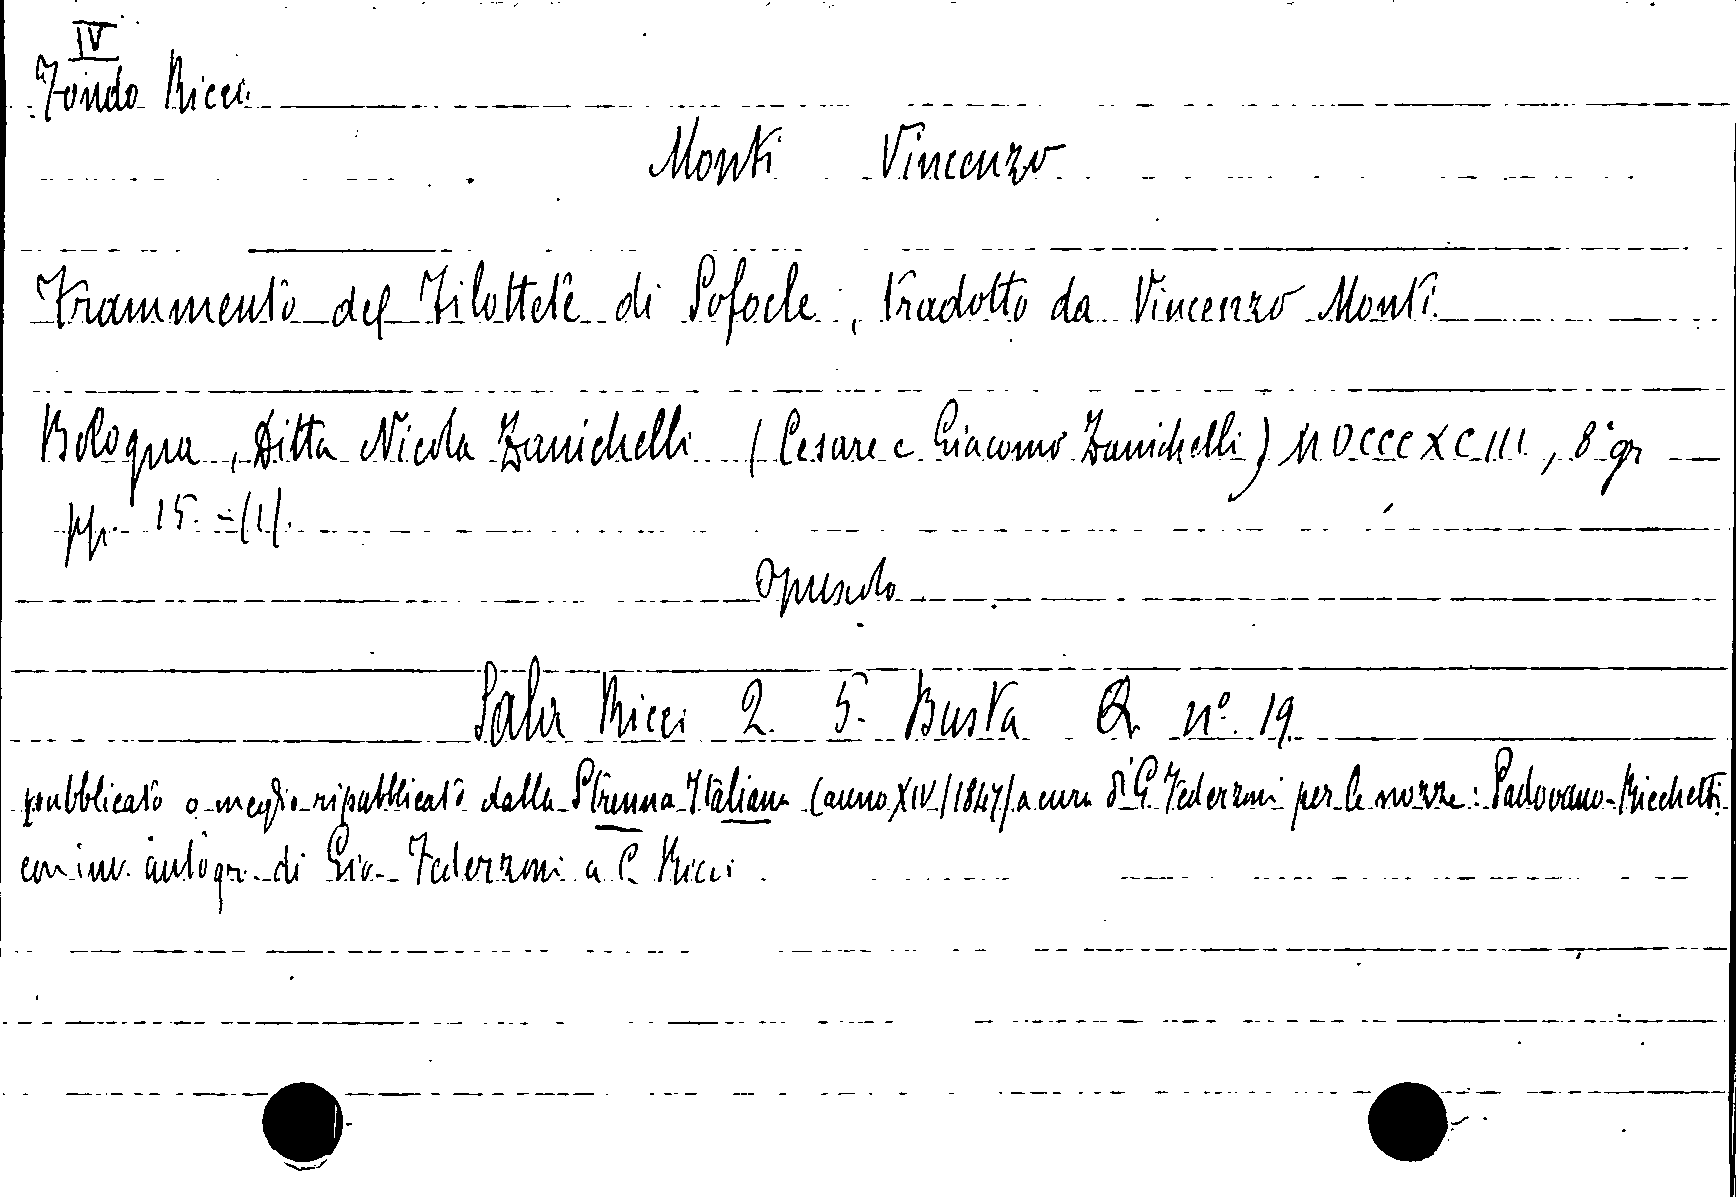 IV
Fondo Ricci
Monti Vincenzo
Frammento del Filottete di Sofocle, tradotto da Vincenzo Monti
Bologna, Ditta Nicola Zanichelli (Cesare e Giacomo Zanichelli) MDCCCXCIII, 8° gr
pp. 15 - (1).
Opuscolo
Sala Ricci 2. 5. Busta Q n° 19
pubblicato o meglio ripubblicato dalla Strenna Italiana (anno XIV/1847/ a cura di G. Federzoni per le nozze: Padovano-Ricchetti.
con inv. autogr. di Gio. Federzoni a C. Ricci.